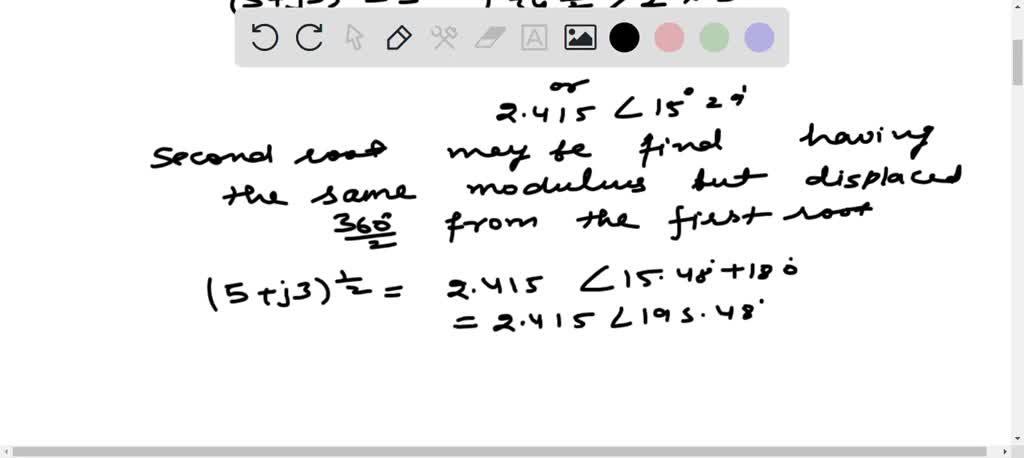 or
2.415 ∠15° 29'
second root may be find having
the same modulus but displaced
360°/2 from the first root
(5+j3)^1/2 = 2.415 ∠15.48°+180°
= 2.415 ∠195.48°